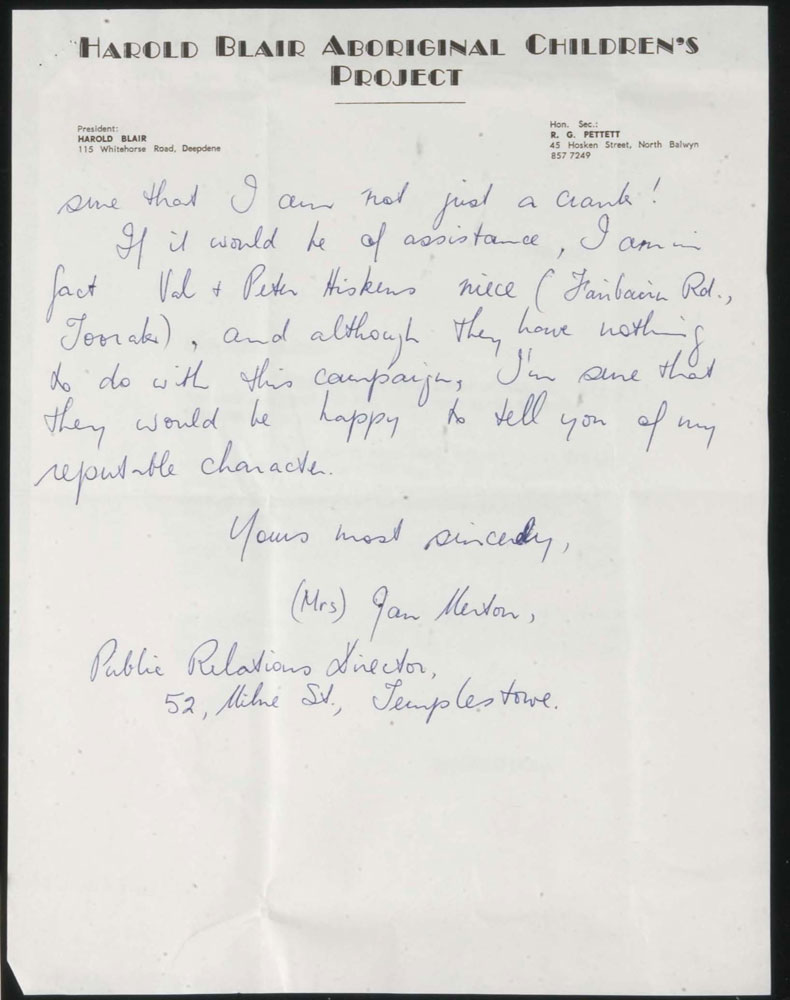 HAROLD BLAIR ABORIGINAL CHILDREN'S
PROJECT
President:
HAROLD BLAIR
115 Whitehorse Road, Deepdene
Hon. Sec.:
R. G. PETTETT
45 Hosken Street, North Balwyn
857 7249
sure that I am not just a crank!
If it would be of assistance, I am in
fact Val + Peter Hiskens niece (Fairbairn Rd.,
Toorak), and although they have nothing
to do with this campaign, I'm sure that
they would be happy to tell you of my
reputable character.
Yours most sincerely,
(Mrs) Jan Merton,
Public Relations Director,
52, Milne St., Templestowe.